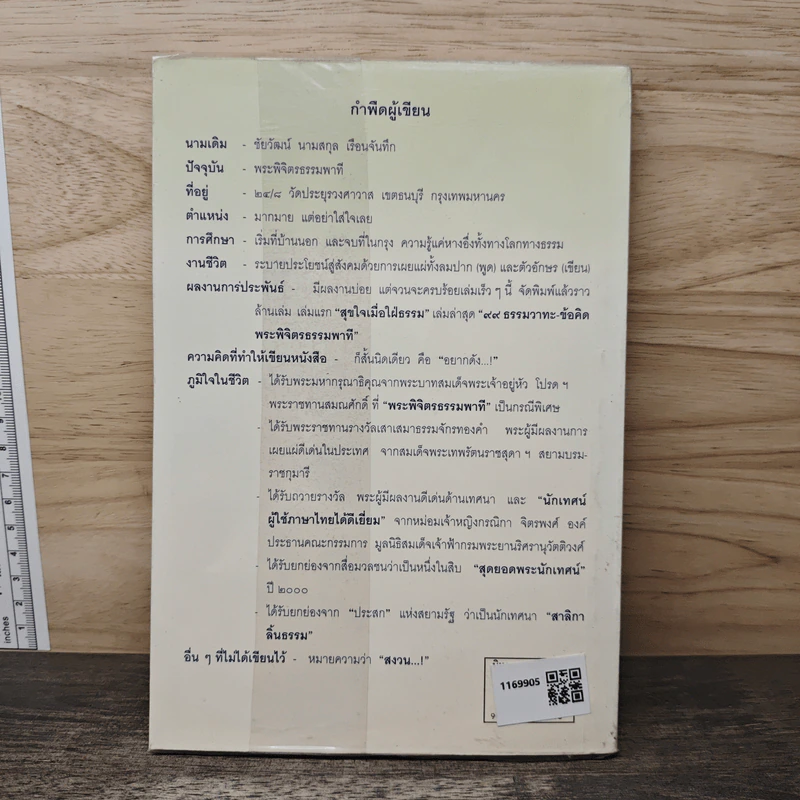 กำพืดผู้เขียน
นามเดิม - ชัยวัฒน์ นามสกุล เรือนจันทึก
ปัจจุบัน - พระพิจิตรธรรมพาที
ที่อยู่ - ๒๔/๘ วัดประยุรวงศาวาส เขตธนบุรี กรุงเทพมหานคร
ตำแหน่ง - มากมาย แต่อย่าใส่ใจเลย
การศึกษา - เริ่มที่บ้านนอก และจบที่ในกรุง ความรู้แค่หางอึ่งทั้งทางโลกทางธรรม
งานชีวิต - ระบายประโยชน์สู่สังคมด้วยการเผยแผ่ทั้งลมปาก (พูด) และตัวอักษร (เขียน)
ผลงานการประพันธ์ - มีผลงานบ่อย แต่จวนจะครบร้อยเล่มเร็ว ๆ นี้ จัดพิมพ์แล้วราว
ล้านเล่ม เล่มแรก "สุขใจเมื่อใฝ่ธรรม" เล่มล่าสุด "๙๙ ธรรมวาทะ-ข้อคิด
พระพิจิตรธรรมพาที"
ความคิดที่ทำให้เขียนหนังสือ - ก็สั้นนิดเดียว คือ "อยากดัง...!"
ภูมิใจในชีวิต - ได้รับพระมหากรุณาธิคุณจากพระบาทสมเด็จพระเจ้าอยู่หัว โปรด ฯ
พระราชทานสมณศักดิ์ ที่ "พระพิจิตรธรรมพาที" เป็นกรณีพิเศษ
- ได้รับพระราชทานรางวัลเสาเสมาธรรมจักรทองคำ พระผู้มีผลงานการ
เผยแผ่ดีเด่นในประเทศ จากสมเด็จพระเทพรัตนราชสุดา ฯ สยามบรม-
ราชกุมารี
- ได้รับถวายรางวัล พระผู้มีผลงานดีเด่นด้านเทศนา และ "นักเทศน์
ผู้ใช้ภาษาไทยได้ดีเยี่ยม" จากหม่อมเจ้าหญิงกรณิกา จิตรพงศ์ องค์
ประธานคณะกรรมการ มูลนิธิสมเด็จเจ้าฟ้ากรมพระยานริศรานุวัดติวงศ์
- ได้รับยกย่องจากสื่อมวลชนว่าเป็นหนึ่งในสิบ "สุดยอดพระนักเทศน์"
ปี ๒๐๐๐
- ได้รับยกย่องจาก "ประสก" แห่งสยามรัฐ ว่าเป็นนักเทศนา "สาลิกา
ลิ้นธรรม"
อื่น ๆ ที่ไม่ได้เขียนไว้ - หมายความว่า "สงวน...!"
1169905
inches